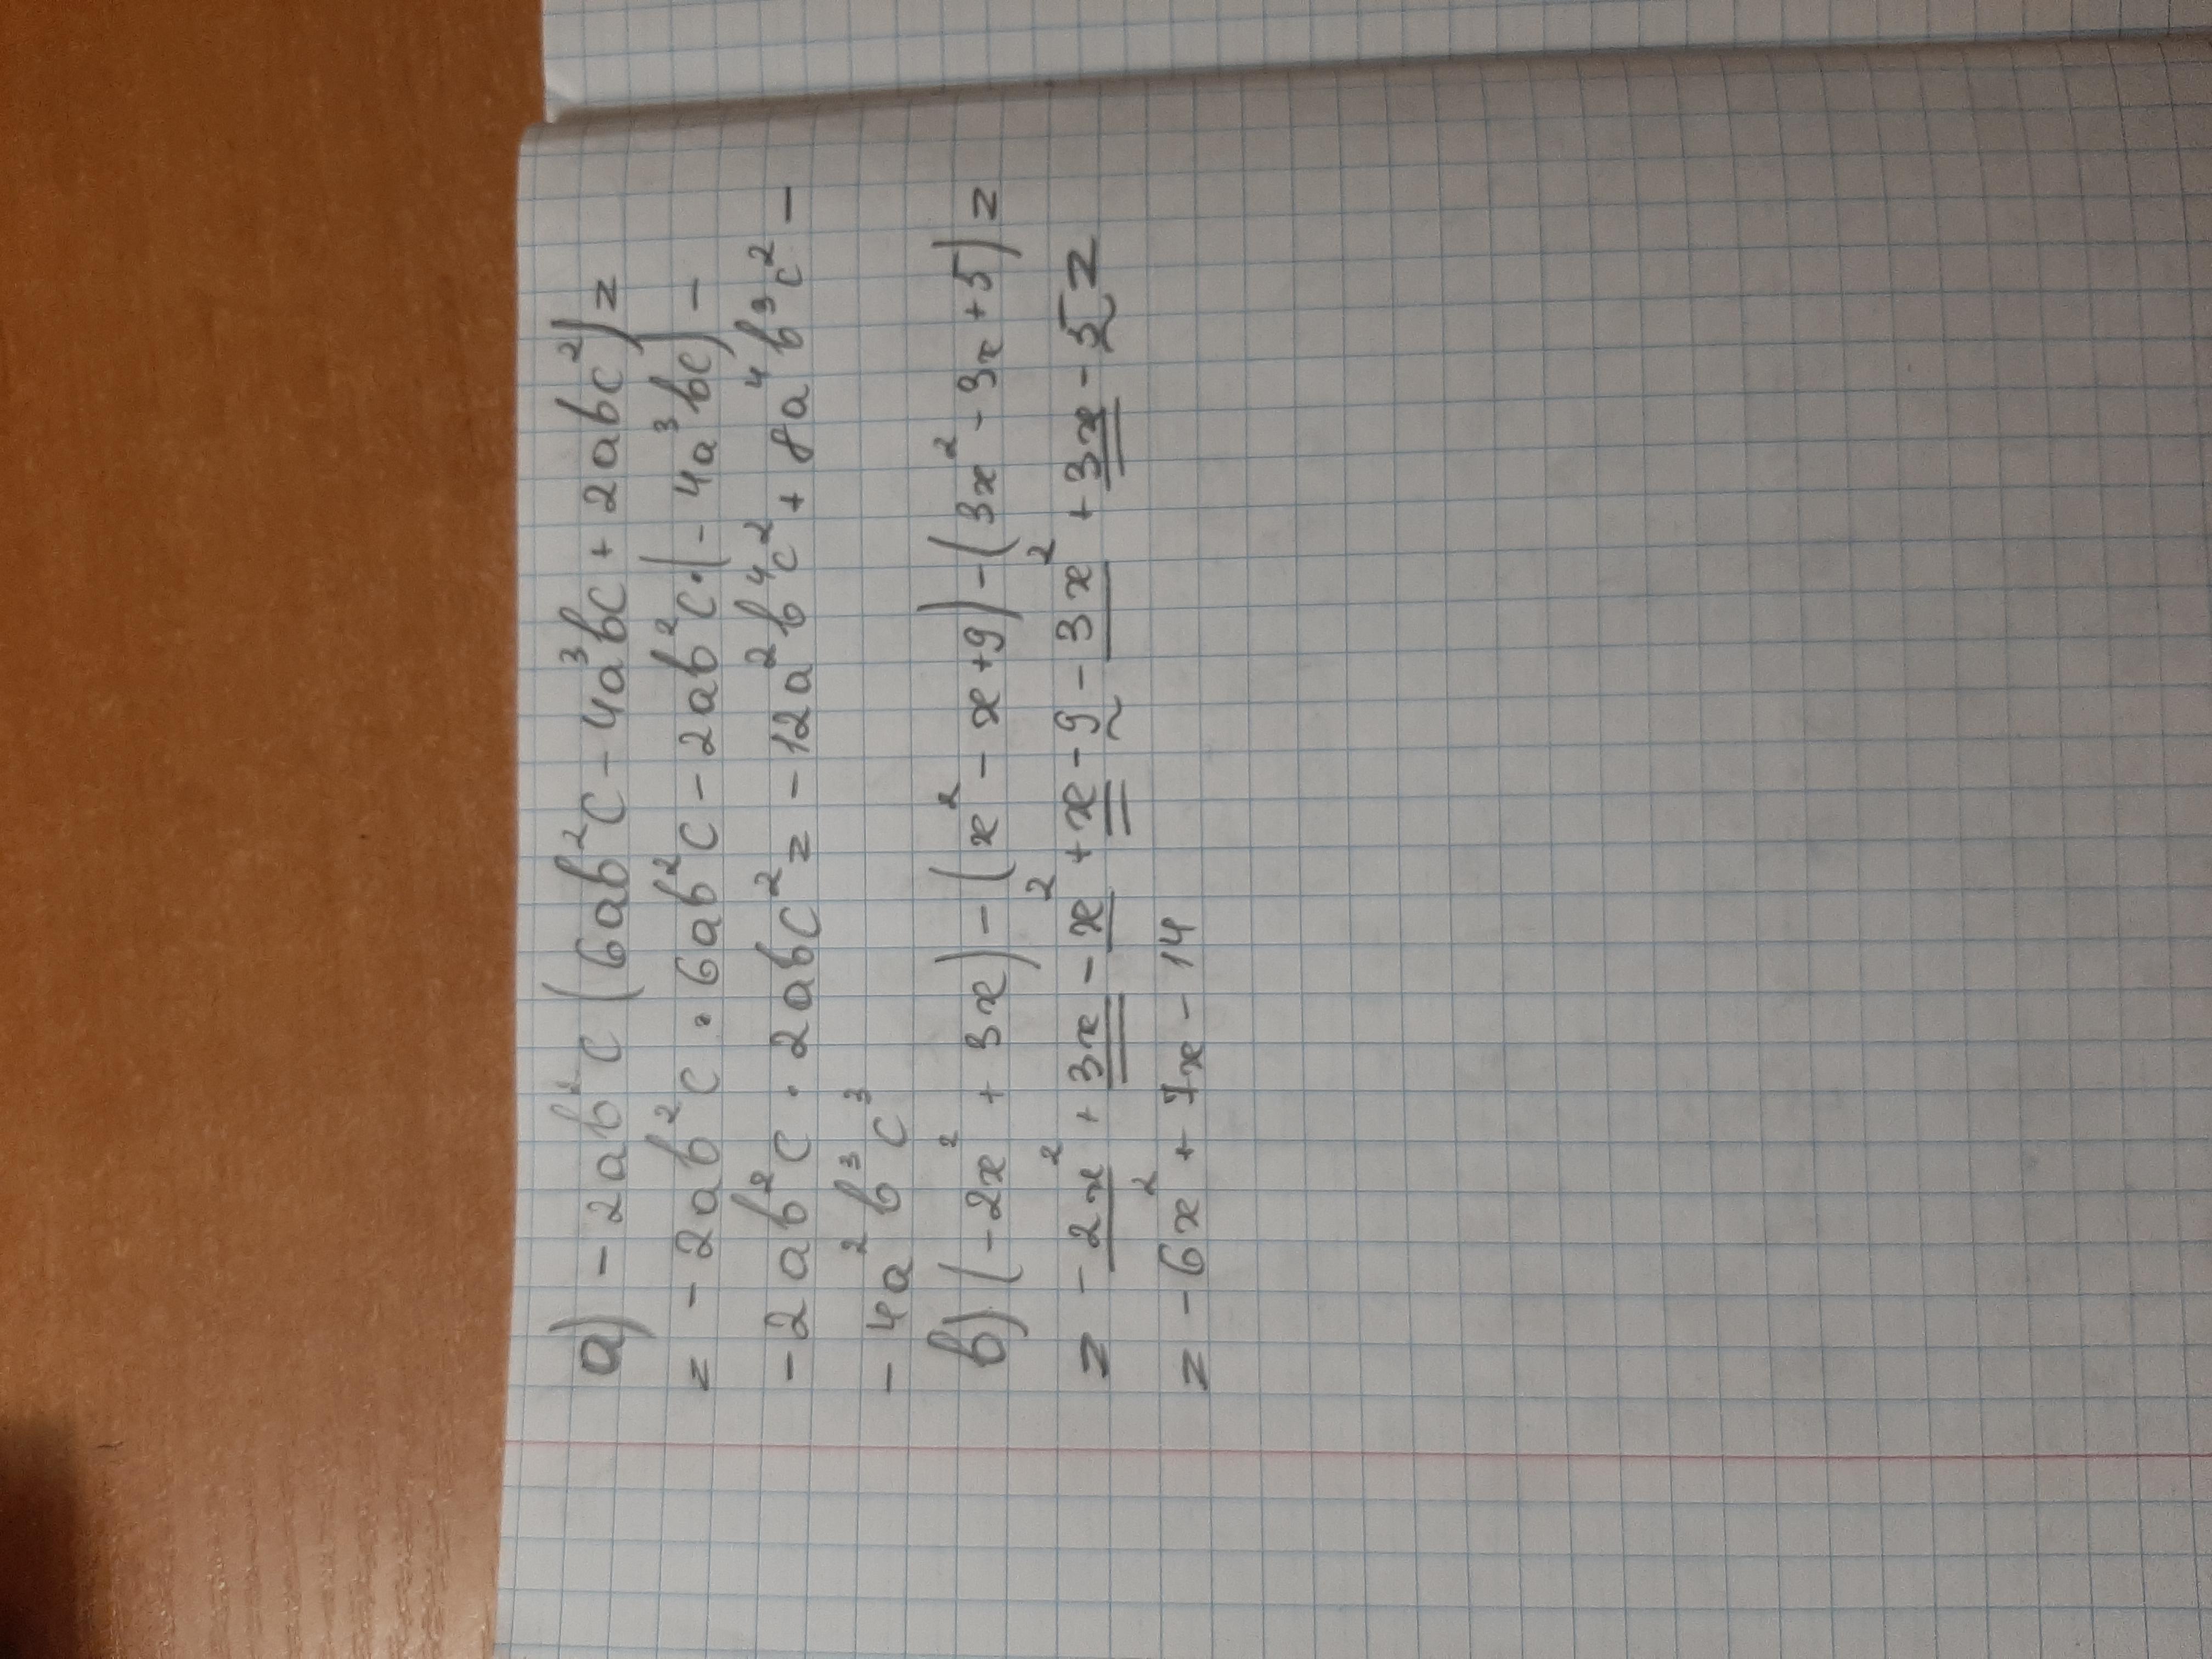 а) - 2ab²c (6ab²c - 4a³bc + 2abc²) =
= - 2ab²c · 6ab²c - 2ab²c · (- 4a³bc) -
- 2ab²c · 2abc² = - 12a²b⁴c² + 8a⁴b³c² -
- 4a²b³c³
в) (- 2x² + 3x) - (x² - x + 9) - (3x² - 3x + 5) =
= - 2x² + 3x - x² + x - 9 - 3x² + 3x - 5 =
= - 6x² + 7x - 14